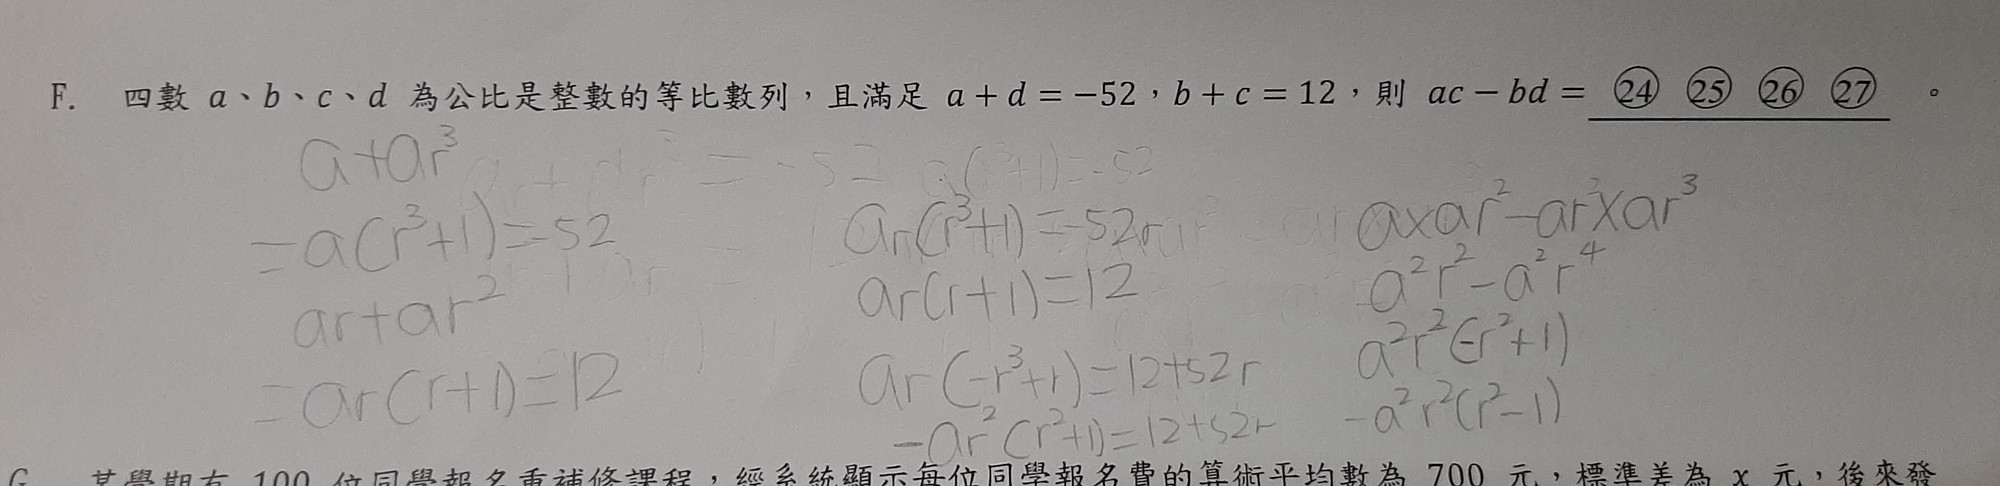 F. 四數 a、b、c、d 為公比是整數的等比數列，且滿足 a + d = −52，b + c = 12，則 ac − bd = ㉔ ㉕ ㉖ ㉗ 。
a+ar³
=a(r³+1)=-52
ar+ar²
=ar(r+1)=12
a(r³+1)=-52
ar(r³+1)=-52r
ar(r+1)=12
ar(-r³+r)=12+52r
-ar²(r²+1)=12+52r
a×ar²-ar×ar³
a²r²-a²r⁴
a²r²(-r²+1)
-a²r²(r²-1)
G. 某學期有 100 位同學報名重補修課程，經系統顯示每位同學報名費的算術平均數為 700 元，標準差為 x 元，後來發